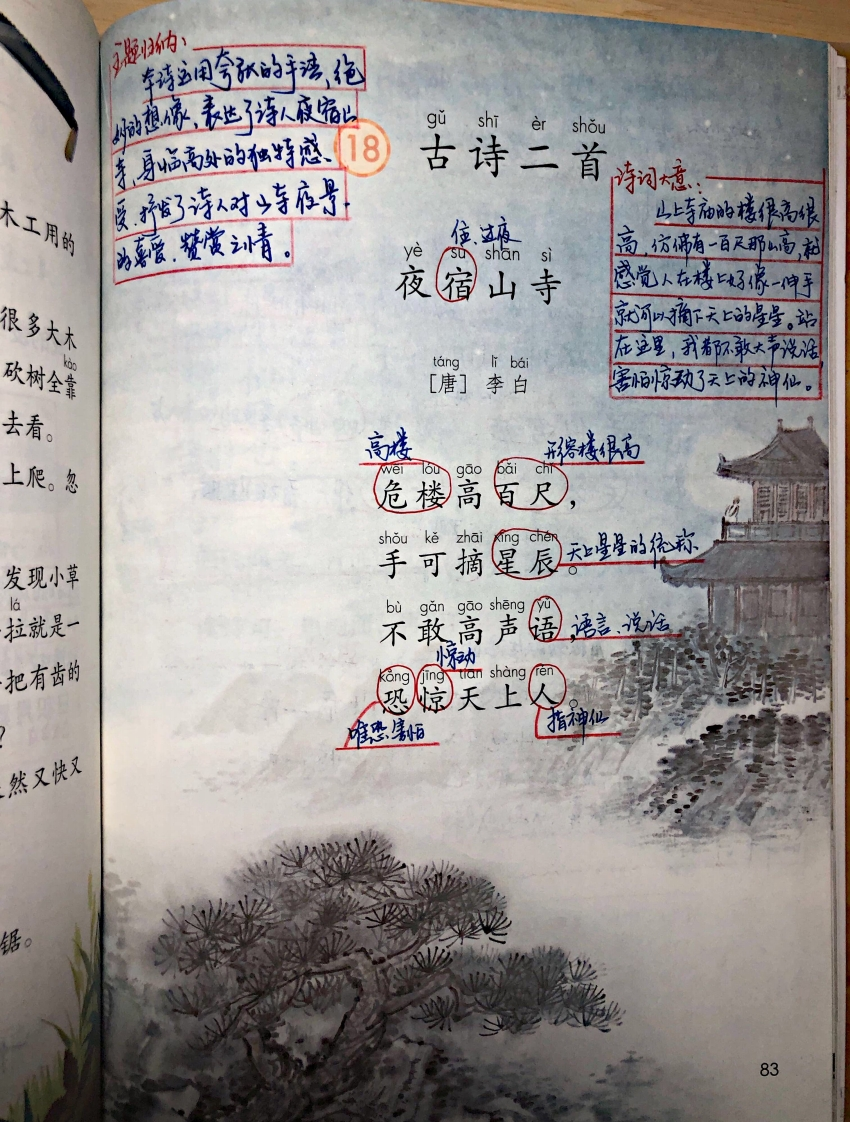 木工用的
很多大木
kào
砍树全靠
去看。
上爬。忽
发现小草
lá
拉就是一
把有齿的
?
然又快又
锯。
主题归纳:
本诗运用夸张的手法,绝
妙的想像,表达了诗人夜宿山
寺,身临高处的独特感
受.抒发了诗人对山寺夜景
的喜爱、赞赏之情。
18
gǔ shī èr shǒu
古诗二首
诗词大意:
山上寺庙的楼很高很
高,仿佛有一百尺那么高,就
感觉人在楼上好像一伸手
就可以摘下天上的星星。站
在这里,我都不敢大声说话,
害怕惊动了天上的神仙。
住,过夜
yè sù shān sì
夜宿山寺
táng lǐ bái
[唐] 李白
高楼 形容楼很高
wēi lóu gāo bǎi chǐ
危楼高百尺,
shǒu kě zhāi xīng chén
手可摘星辰。
天上星星的统称
bù gǎn gāo shēng yǔ
不敢高声语,
语言、说话
惊动
kǒng jīng tiān shàng rén
恐惊天上人。
唯恐,害怕 指神仙
83